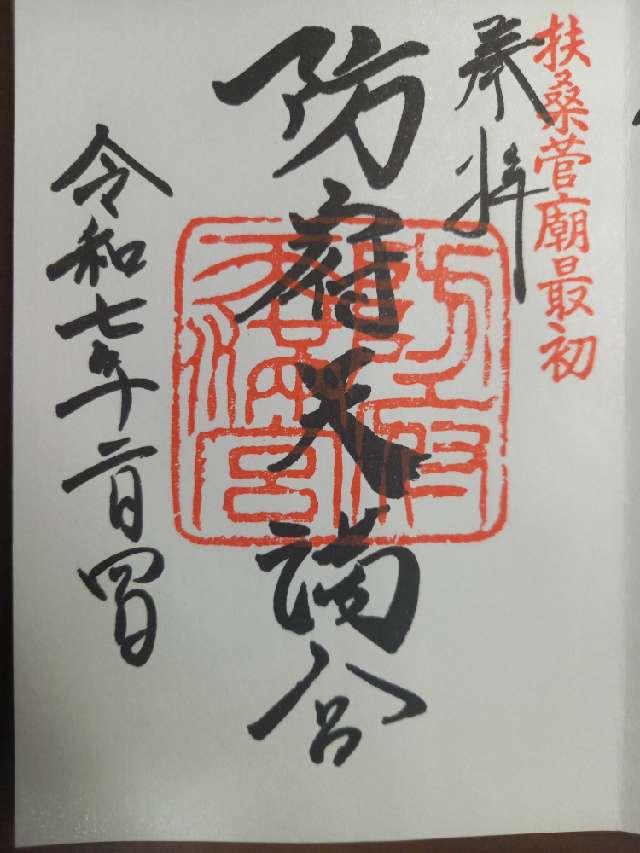 扶桑菅廟最初
奉拝
防府天満宮
防府天満宮
令和七年二月四日